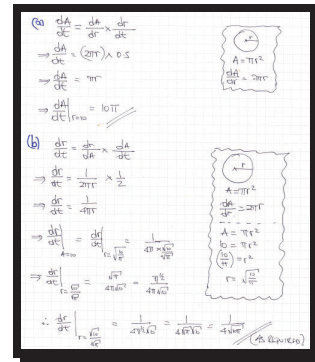 (a) dA/dt = dA/dr × dr/dt
⇒ dA/dt = (2πr) × 0.5
⇒ dA/dt = πr
⇒ dA/dt |r=10 = 10π
r
A = πr²
dA/dr = 2πr
(b) dr/dt = dr/dA × dA/dt
⇒ dr/dt = 1/2πr × 1/2
⇒ dr/dt = 1/4πr
⇒ dr/dt |A=10 = dr/dt |r=√10/√π = 1/4π×√10/√π
⇒ dr/dt |r=√10/√π = √π/4π√10 = π^½/4π√10
∴ dr/dt |r=√10/√π = 1/4π^½√10 = 1/4√π√10 = 1/4√10π
(AS REQUIRED)
r
A = πr²
dA/dr = 2πr
A = πr²
10 = πr²
(10/π) = r²
r = √10/√π